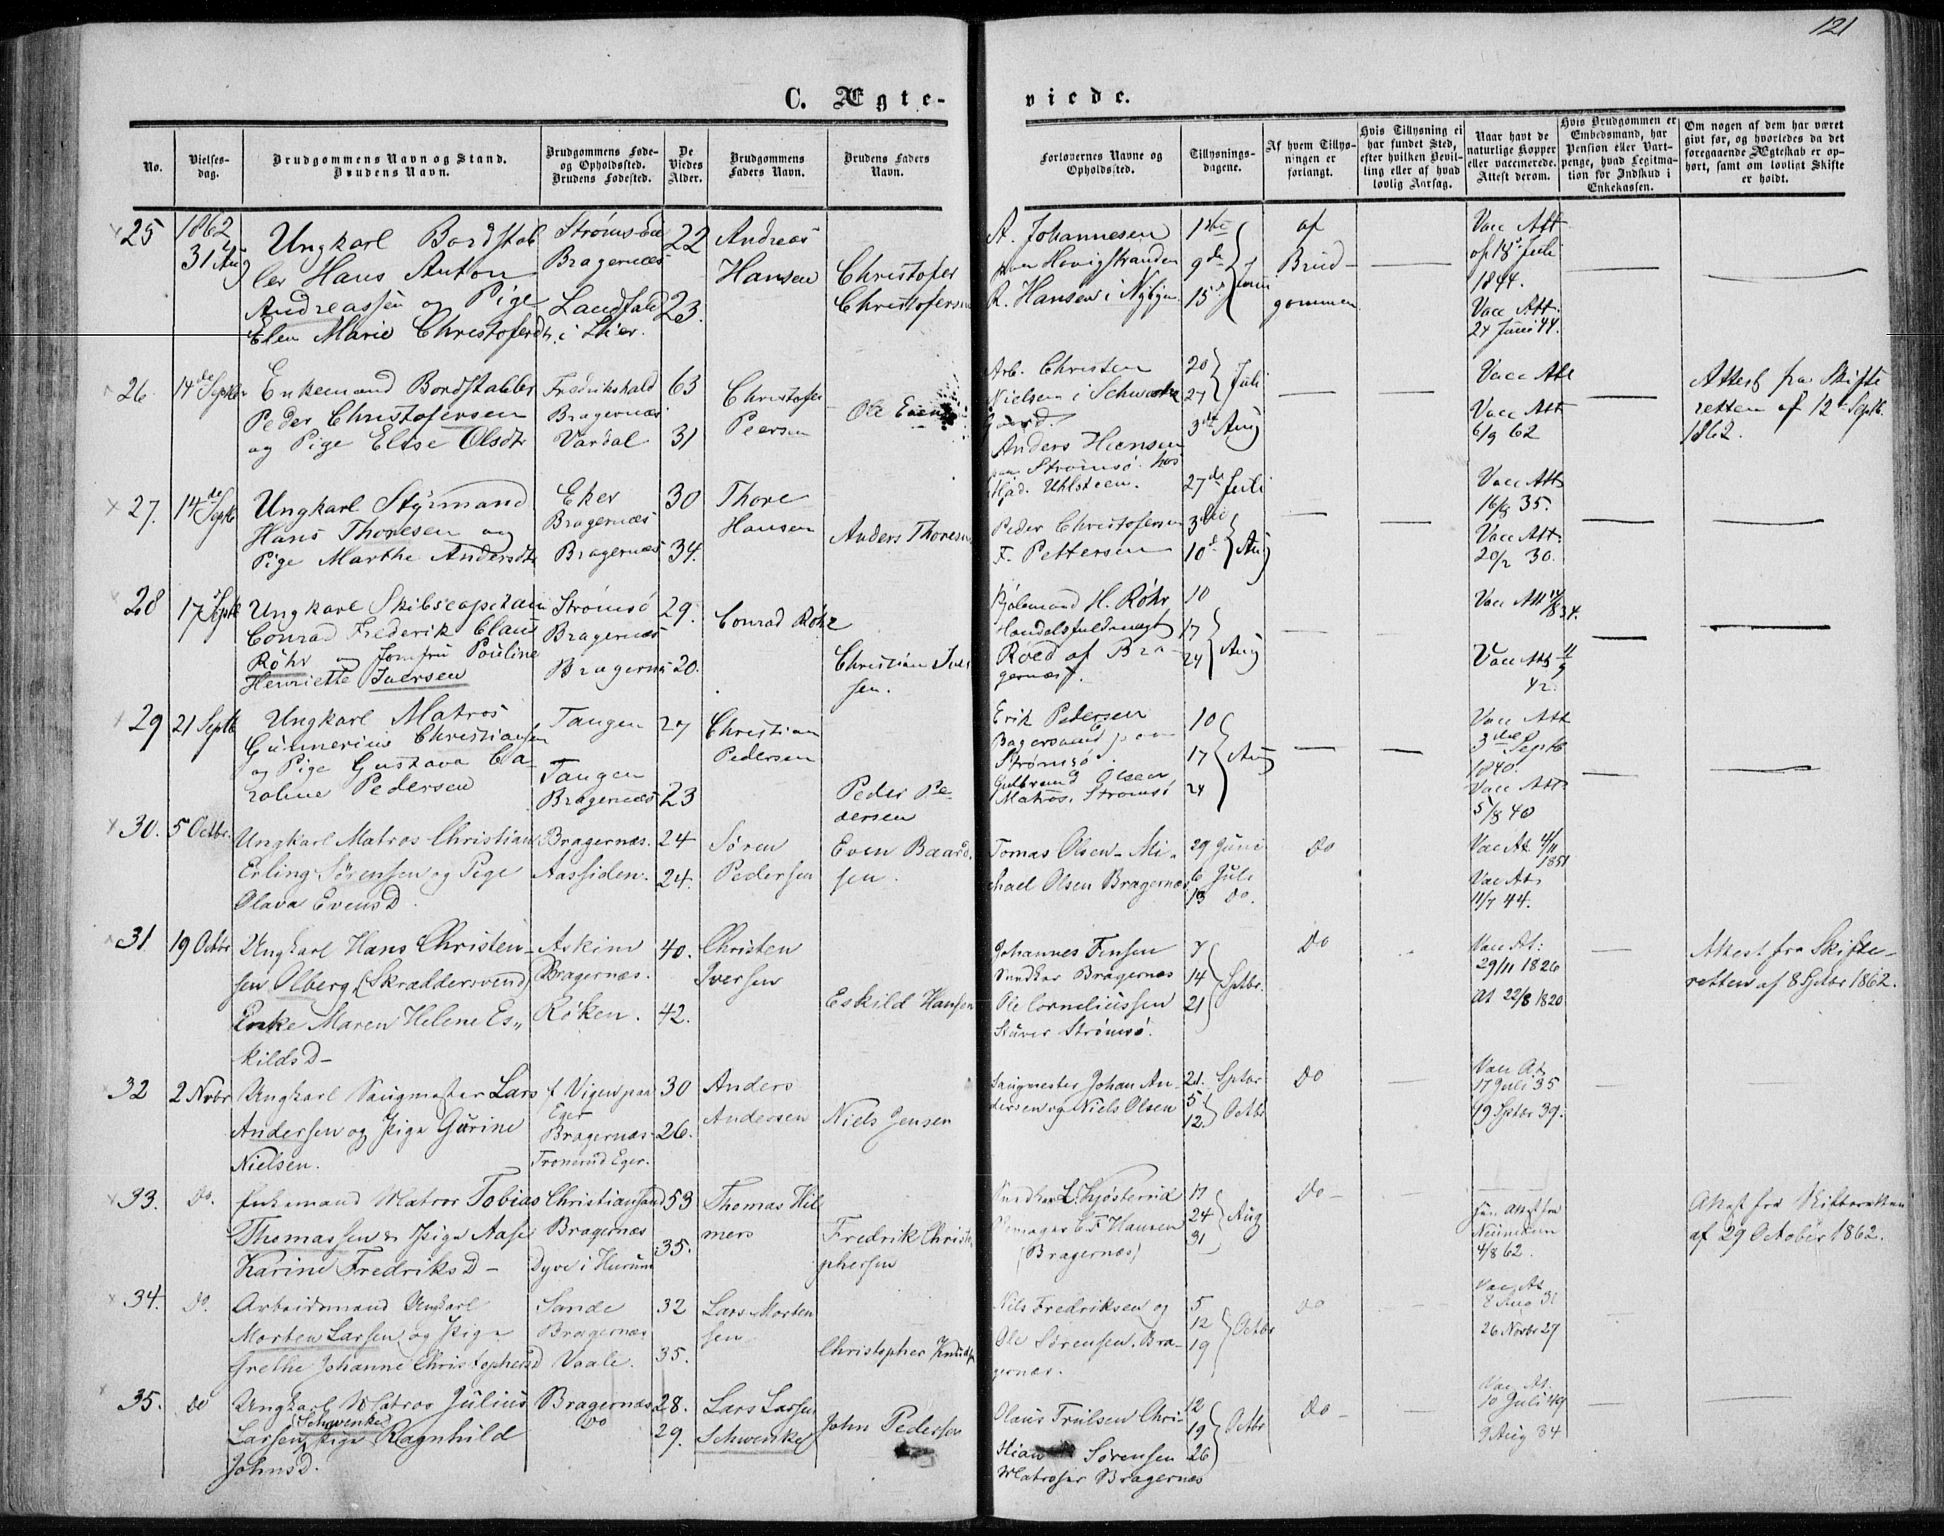 121
C. Ægteviede.
No.
Vielsesdag.
Brudgommens Navn og Stand. Brudens Navn.
Brudgommens Føde- og Opholdssted. Brudens Fødested.
De Viedes Alder.
Brudgommens Faders Navn.
Brudens Faders Navn.
Forlovernes Navne og Opholdssted.
Tillysningsdagene.
Af hvem Tillysningen er forlangt.
Hvis Tillysning ei har fundet Sted, efter hvilken Bevilling eller af hvad lovlig Aarsag.
Naar havt de naturlige Kopper eller vaccinerede. Attest derom.
Hvis Brudgommen er Embedsmand, har Pension eller Vartpenge, hvad Legitimation for Indskud i Enkekassen.
Om nogen af dem har været givt før, og hvorledes da det foregaaende Ægteskab er ophørt, samt om lovligt Skifte er holdt.
25 1862 31 Aug
Ungkarl Bordstabler Hans Anton Andreassen og Pige Elen Marie Christofersdt.
Bragernæs Landfald i Lier.
22 23.
Andreas Hansen
Christofer Christofersen
A. Johannesen paa Havigstranden R. Hansen i Nybyen
1ste 9de 15de
af Brudgommen
Vac Att. af 18 Juli 1844.
Vac Att. 24 Juni 44.
26. 14de Septbr
Enkemand Bordstabler Peder Christofersen og Pige Elise Olsdtr
Fredrikshald Bragernæs Vardal
63 31
Christofer Peersen
Ole Evens
Arb. Christen Nielsen i Schwartz Gaard. Anders Hansen paa Strømsø hos Kjøb. Uhlsteen.
20 27 Juli 3die Aug
Vacc Att
Vacc Att 6/9 62
Attest fra Skifteretten af 12te Septb. 1862.
27. 14de Septb
Ungkarl Styrmand Hans Thoresen og Pige Marthe Andersdtr
Eker Bragernæs Bragernæs
30 34.
Thore Hansen
Anders Thoresen
Peder Christofersen F. Pettersen
27de Juli 3die 10de Aug
Vacc Att 16/8 35.
Vacc Att. 20/2 30.
28 17 Septb
Ungkarl Skibscapitain Conrad Frederik Claus Röhr og Jomfru Pouline Henriette Iversen
Strömsö Bragernæs Bragernæs
29. 20.
Conrad Röhr
Christian Iversen.
Kjøbmand H. Röhr Handelsfuldmægt Röed af Bragernæs.
10 17 24 Aug
Vacc Att 34.
Vacc Att 11/9 42.
29 21 Septb
Ungkarl Matros Gunnerius Christiansen og Pige Gustava Caroline Pedersen
Tangen Tangen Bragernæs
27 23
Christian Pedersen
Peder Pedersen
Erik Pedersen Bagersvend paa Strømsø. Gulbrand Olsen Matros. Strömsö
10 17 24 Aug
Vacc Att 3die Septb 1840.
Vacc Att 5/8 40
30. 5 Octbr.
Ungkarl Matros Christian Erling Sørensen og Pige Olava EvensD.
Bragernæs. Aassiden.
24 24.
Søren Pedersen
Even Baardsen.
Tomas Olsen - Michael Olsen Bragernæs
29 Juni 6 Juli 13 Do.
Do
Vac At 4/11 1851
Vac At. 11/7 44.
31 19 Octbr
Ungkarl Hans Christensen Olberg (Skræddersvend) Enke Maren Helene EskildsD-
Askim Bragernæs. Røken.
40. 42.
Christen Iversen
Eskild Hansen
Johannes Jensen Bragernæs Ole Corneliussen Stuver Strømsö.
7 14 21 Sptbr.
Do
Vac At: 29/11 1826
At 22/8 1820
Attest fra Skifteretten af 8 Sptbr 1862.
32 2 Nvbr
Ungkarl Saugmester Lars Andersen og Pige Gurine Nielsen.
f Vigen paa Eger Bragernæs Tronerud Eger.
30 26.
Anders Andersen
Niels Jensen
Saugmester Johan Andersen og Niels Olsen
21. Sptbr 5 12 Octbr
Do
Vac At. 17 Juli 35
19 Sptbr 39.
33. Do.
Enkemand Matros Tobias Thomassen & Pige Aase Karine FredriksD-
Christiansand Bragernæs Dyve i Hurum
53 35.
Thomas Hilmers
Fredrik Christophersen
L. Kjøsterud Hansen (Bragernæs)
17 24 31 Aug
Do -
4/8 62.
Attest fra Skifteretten af 29 October 1862.
34. Do.
Arbeidsmand Ungkarl Morten Larsen og Pige Grethe Johanne ChristophersD
Sande Bragernæs Vaale.
32 35.
Lars Mortensen
Christopher Knudsen
Nils Fredriksen og Ole Sørensen. Bragernæs.
5 12 19 Octbr
Do
Vac At 8 Aug 31
26 Novbr 27
35. Do
Ungkarl Matros Julius Larsen Schwenke Pige Ragnhild JohnsD.
Bragernæs Do
28. 29.
Lars Larsen Schwenke
John Pedersen
Olaus Trulsen Christian Sørensen Matroser Bragernæs
12 19 26 Octbr
Do -
Vac. At. 10 Juli 49
9 Aug 34